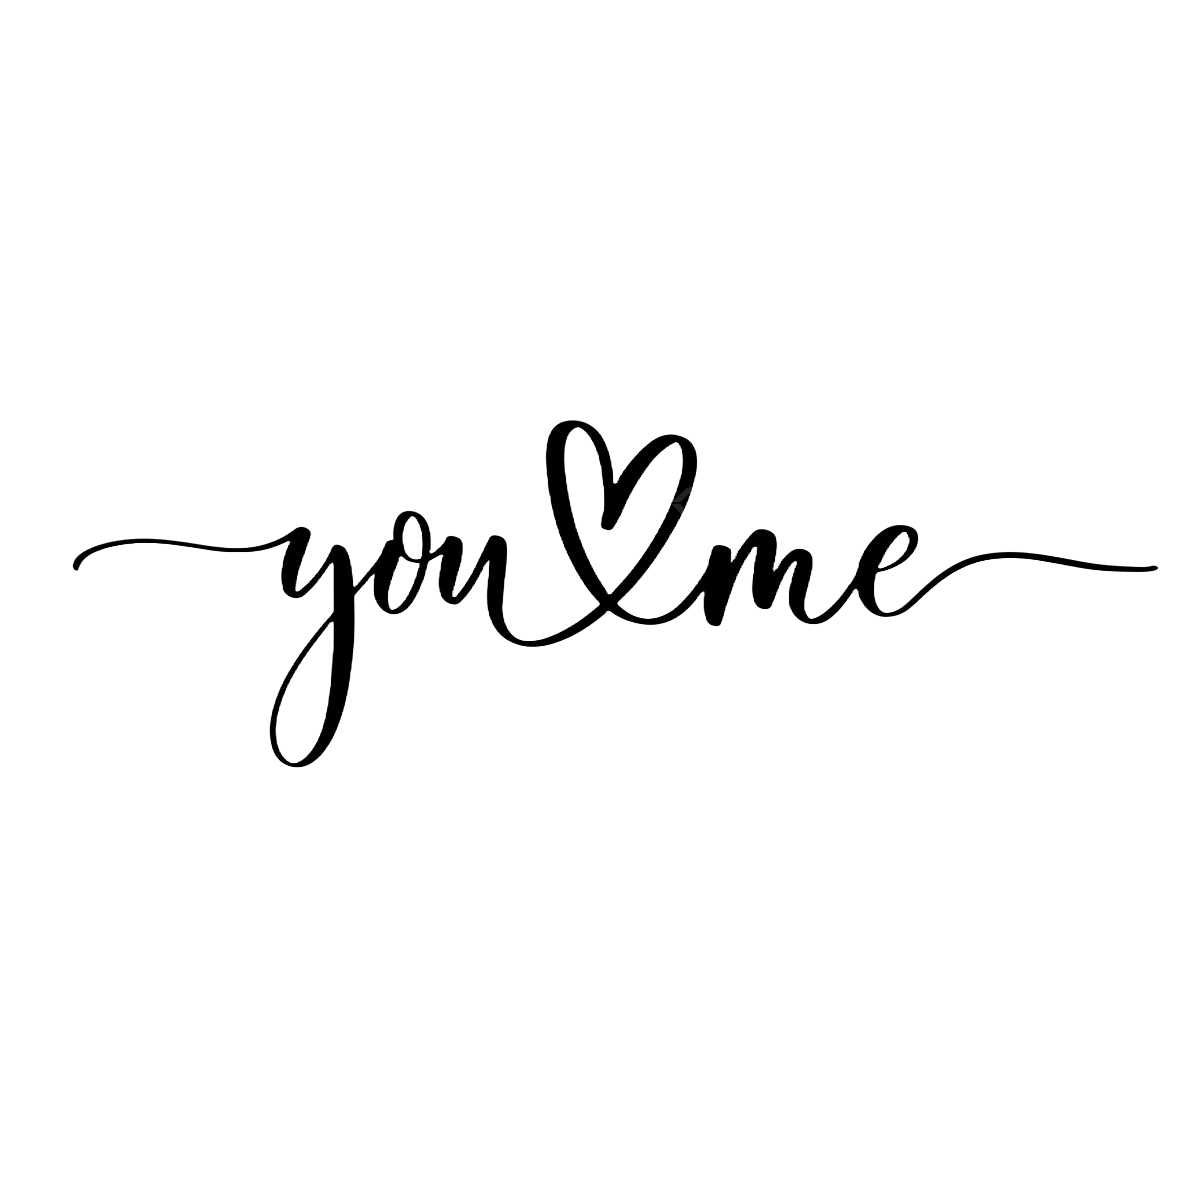 you♥me